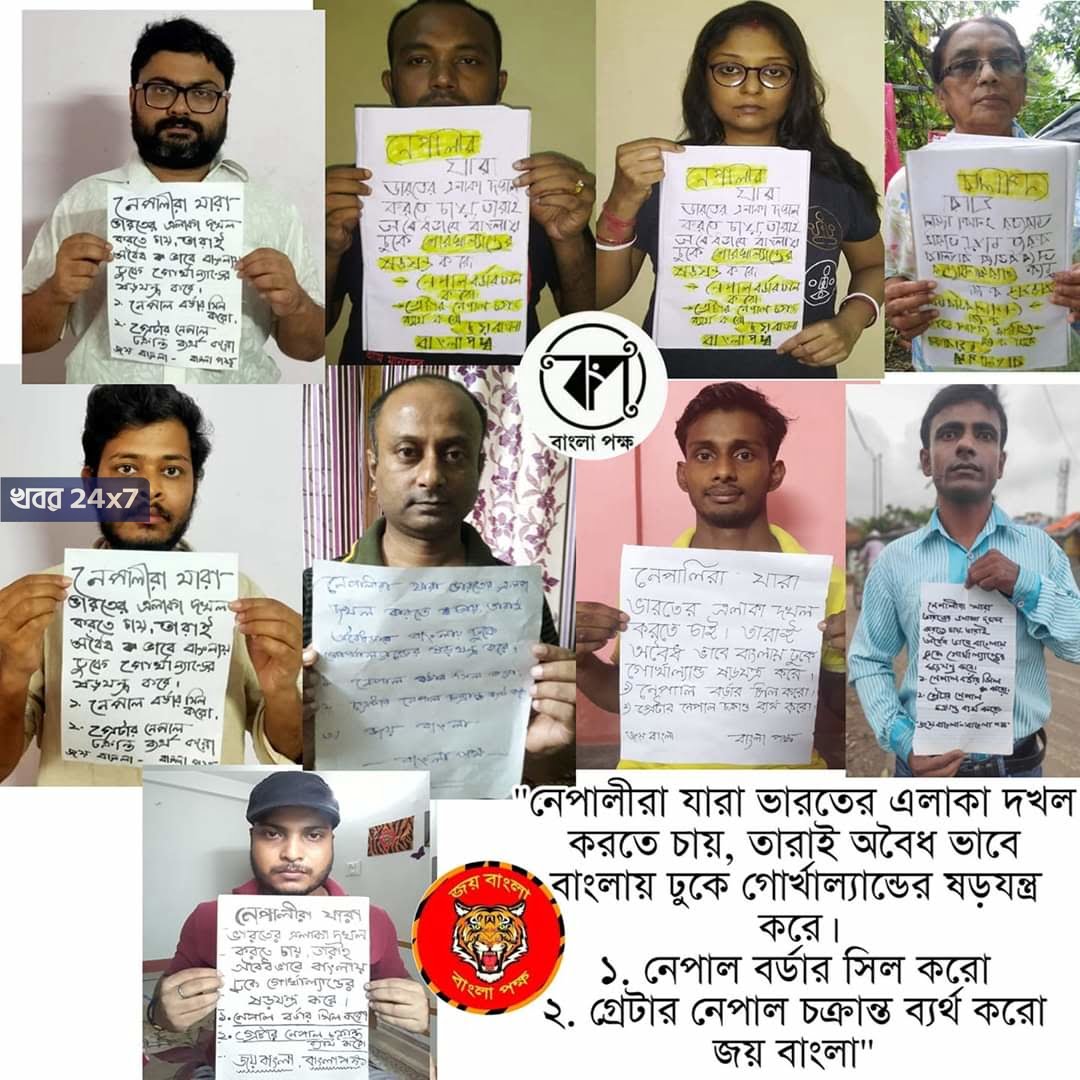 নেপালীরা যারা
ভারতের এলাকা দখল
করতে চায়, তারাই
অবৈধ ভাবে বাংলায়
ঢুকে গোর্খাল্যান্ডের
ষড়যন্ত্র করে।
১. নেপাল বর্ডার সিল
করো.
২. গ্রেটার নেপাল
চক্রান্ত ব্যর্থ করো
জয় বাংলা - বাংলা পক্ষ
নেপালীরা
যারা
ভারতের এলাকা দখল
করতে চায়, তারাই
অবৈধভাবে বাংলায়
ঢুকে গোরখাল্যান্ডের
ষড়যন্ত্র করে
নেপাল বর্ডার সিল
করো
গ্রেটার নেপাল চক্রান্ত
ব্যর্থ করো
জয় বাংলা
বাংলা পক্ষ
নেপালীরা
যারা
ভারতের এলাকা দখল
করতে চায়, তারাই
অবৈধভাবে বাংলায়
ঢুকে গোরখাল্যান্ডের
ষড়যন্ত্র করে
নেপাল বর্ডার সিল
করো
গ্রেটার নেপাল চক্রান্ত
ব্যর্থ করো
জয় বাংলা
বাংলা পক্ষ
বাংলা পক্ষ
খবর 24x7
নেপালীরা যারা
ভারতের এলাকা দখল
করতে চায়, তারাই
অবৈধ ভাবে বাংলায়
ঢুকে গোর্খাল্যান্ডের
ষড়যন্ত্র করে।
১. নেপাল বর্ডার সিল
করো.
২. গ্রেটার নেপাল
চক্রান্ত ব্যর্থ করো
জয় বাংলা - বাংলা পক্ষ
নেপালিরা যারা ভারতের এলাকা
দখল করতে চায়, তারাই
অবৈধভাবে বাংলায় ঢুকে
গোর্খাল্যান্ডের ষড়যন্ত্র করে।
নেপাল বর্ডার সিল করো
২. গ্রেটার নেপাল চক্রান্ত ব্যর্থ করো
৩) জয় বাংলা
- বাংলা পক্ষ
নেপালিরা যারা
ভারতের এলাকা দখল
করতে চাই। তারাই
অবৈধ ভাবে বাংলায় ঢুকে
গোর্খাল্যান্ড ষড়যন্ত্র করে।
১) নেপাল বর্ডার সিল করো।
২) গ্রেটার নেপাল চক্রান্ত ব্যর্থ করো।
জয় বাংলা বাংলা পক্ষ
নেপালীরা যারা
ভারতের এলাকা দখল
করতে চায় তারাই
অবৈধ ভাবে বাংলায়
ঢুকে গোর্খাল্যান্ডের
ষড়যন্ত্র করে।
১. নেপাল বর্ডার সিল
করো.
২. গ্রেটার নেপাল
চক্রান্ত ব্যর্থ করো
জয় বাংলা - বাংলা পক্ষ
নেপালীরা যারা
ভারতের এলাকা দখল
করতে চায়, তারাই
অবৈধ ভাবে বাংলায়
ঢুকে গোর্খাল্যান্ডের
ষড়যন্ত্র করে।
১. নেপাল বর্ডার সিল করো
২. গ্রেটার নেপাল চক্রান্ত
ব্যর্থ করো
জয় বাংলা, বাংলা পক্ষ
জয় বাংলা
বাংলা পক্ষ
"নেপালীরা যারা ভারতের এলাকা দখল
করতে চায়, তারাই অবৈধ ভাবে
বাংলায় ঢুকে গোর্খাল্যান্ডের ষড়যন্ত্র
করে।
১. নেপাল বর্ডার সিল করো
২. গ্রেটার নেপাল চক্রান্ত ব্যর্থ করো
জয় বাংলা"